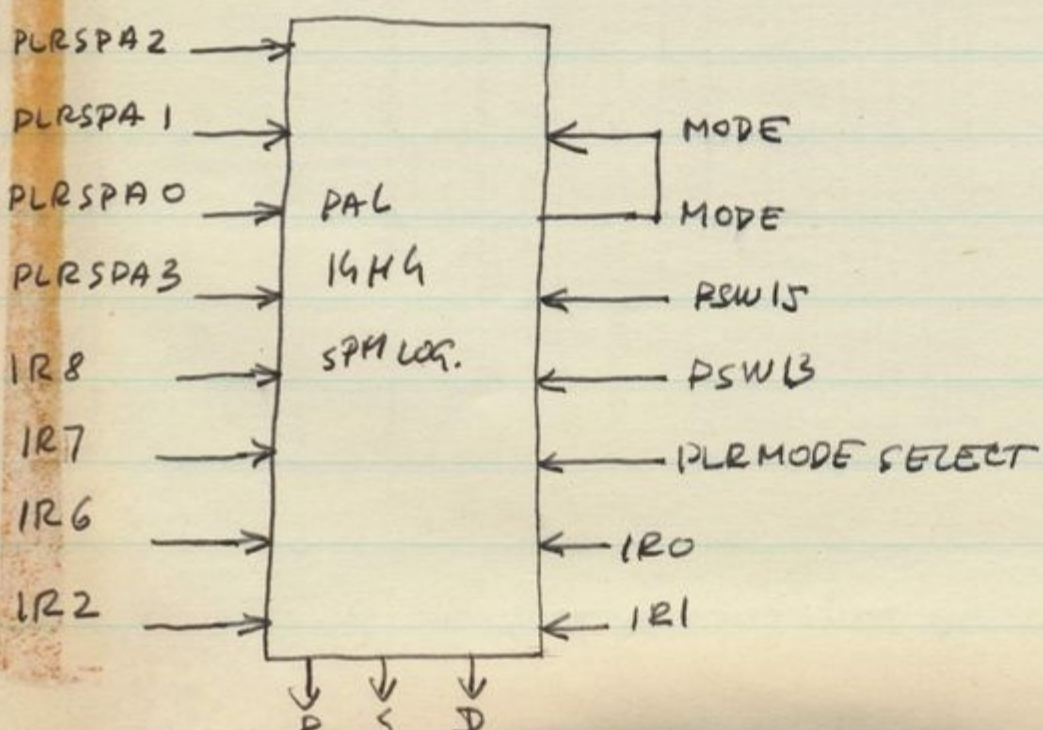 PLRSPA2
PLRSPA1
PLRSPA0
PLRSPA3
IR8
IR7
IR6
IR2
PAL
14H4
SPM LOG.
MODE
MODE
PSW15
PSW13
PLRMODE SELECT
IR0
IR1